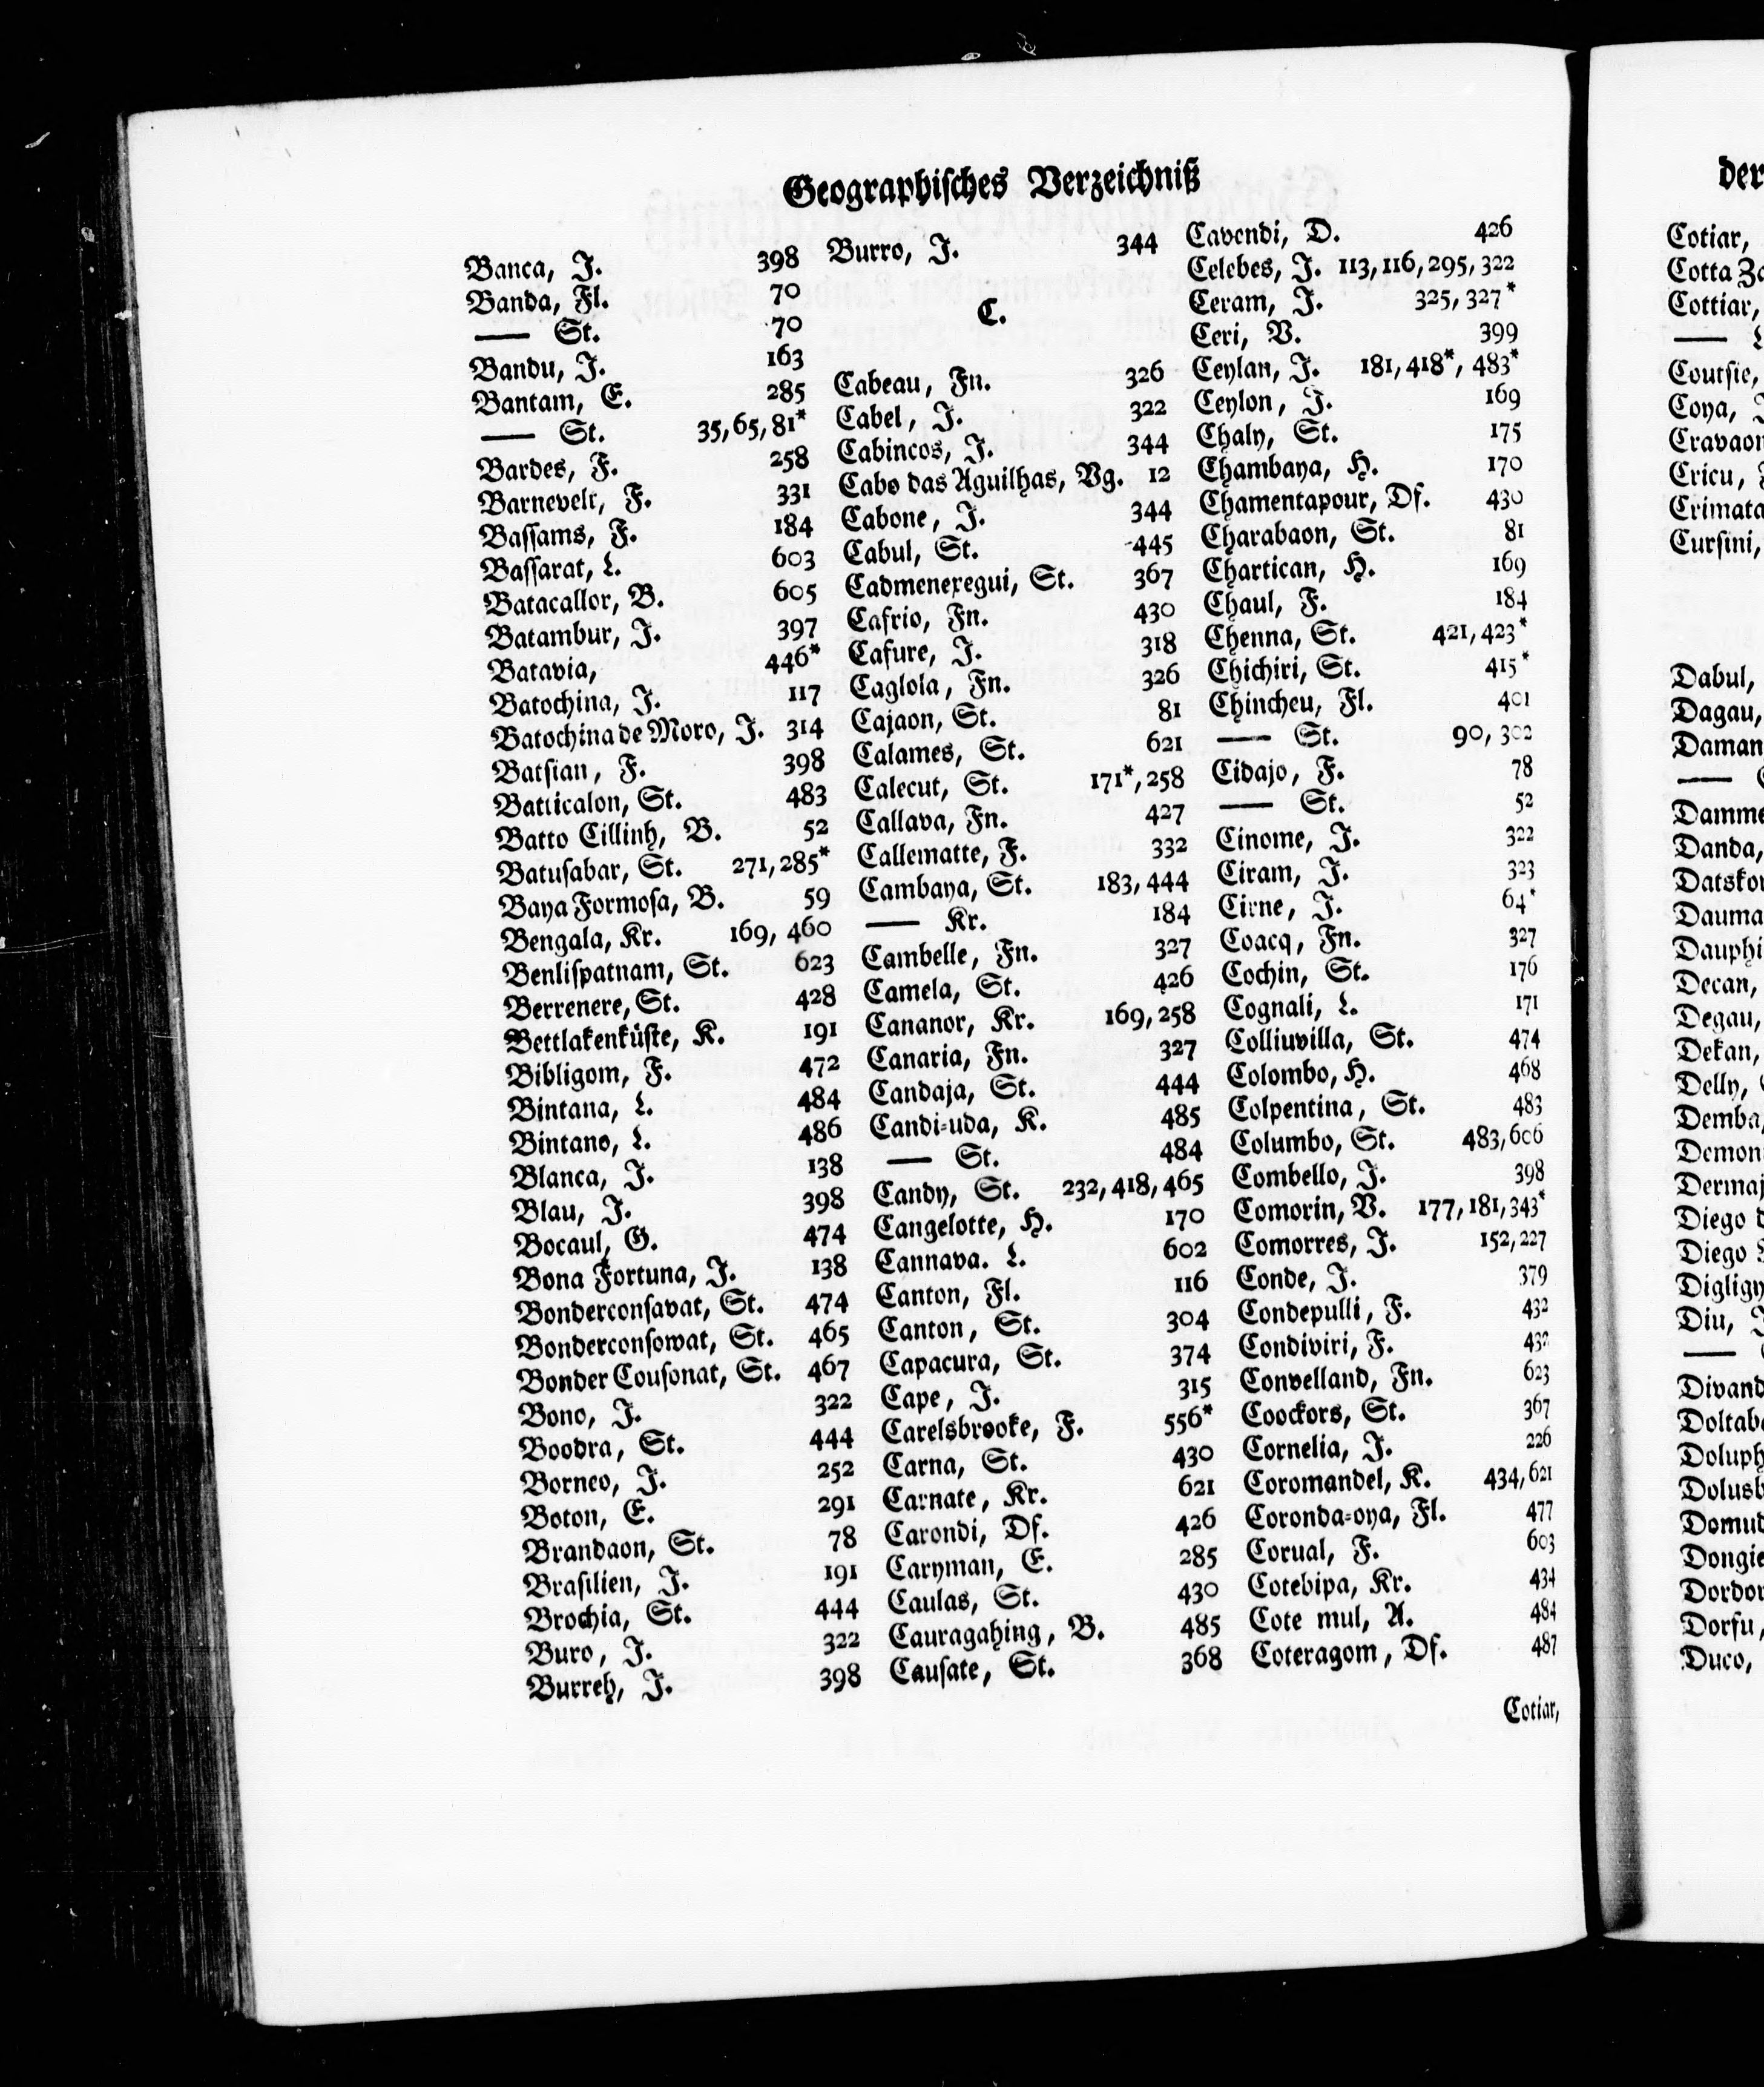 Geographisches Verzeichniß
Banca, J. 398
Banda, Fl. 70
—— St. 70
Bandu, J. 163
Bantam, E. 285
—— St. 35, 65, 81*
Bardes, F. 258
Barnevelt, F. 331
Bassams, F. 184
Bassarat, L. 603
Batacallor, B. 605
Batambur, J. 397
Batavia, 446*
Batochina, J. 117
Batochina de Moro, J. 314
Batsian, F. 398
Batticalon, St. 483
Batto Cillinh, B. 52
Batusabar, St. 271, 285*
Baya Formosa, B. 59
Bengala, Kr. 169, 460
Benlispatnam, St. 623
Berrenere, St. 428
Bettlakenküste, K. 191
Bibligom, F. 472
Bintana, L. 484
Bintano, L. 486
Blanca, J. 138
Blau, J. 398
Bocaul, G. 474
Bona Fortuna, J. 138
Bonderconsavat, St. 474
Bonderconsowat, St. 465
Bonder Cousonat, St. 467
Bono, J. 322
Boodra, St. 444
Borneo, J. 252
Boton, E. 291
Brandaon, St. 78
Brasilien, J. 191
Brochia, St. 444
Buro, J. 322
Burreh, J. 398
Burro, J. 344
C.
Cabeau, Fn. 326
Cabel, J. 322
Cabincos, J. 344
Cabo das Aguilhas, Vg. 12
Cabone, J. 344
Cabul, St. 445
Cadmenexegui, St. 367
Cafrio, Fn. 430
Cafure, J. 318
Caglola, Fn. 326
Cajaon, St. 81
Calames, St. 621
Calecut, St. 171*, 258
Callava, Fn. 427
Callematte, F. 332
Cambaya, St. 183, 444
—— Kr. 184
Cambelle, Fn. 327
Camela, St. 426
Cananor, Kr. 169, 258
Canaria, Fn. 327
Candaja, St. 444
Candi-uda, K. 485
—— St. 484
Candy, St. 232, 418, 465
Cangelotte, H. 170
Cannava. L. 602
Canton, Fl. 116
Canton, St. 304
Capacura, St. 374
Cape, J. 315
Carelsbrooke, F. 556*
Carna, St. 430
Carnate, Kr. 621
Carondi, Df. 426
Caryman, E. 285
Caulas, St. 430
Cauragahing, B. 485
Causate, St. 368
Cavendi, D. 426
Celebes, J. 113, 116, 295, 322
Ceram, J. 325, 327*
Ceri, V. 399
Ceylan, J. 181, 418*, 483*
Ceylon, J. 169
Chaly, St. 175
Chambaya, H. 170
Chamentapour, Df. 430
Charabaon, St. 81
Chartican, H. 169
Chaul, F. 184
Chenna, St. 421, 423*
Chichiri, St. 415*
Chincheu, Fl. 401
—— St. 90, 302
Cidajo, F. 78
—— St. 52
Cinome, J. 322
Ciram, J. 323
Cirne, J. 64*
Coacq, Fn. 327
Cochin, St. 176
Cognali, L. 171
Colliuvilla, St. 474
Colombo, H. 468
Colpentina, St. 483
Columbo, St. 483, 606
Combello, J. 398
Comorin, V. 177, 181, 343*
Comorres, J. 152, 227
Conde, J. 379
Condepulli, F. 432
Condiviri, F. 432
Convelland, Fn. 623
Coockors, St. 367
Cornelia, J. 226
Coromandel, K. 434, 621
Coronda-oya, Fl. 477
Corual, F. 603
Cotebipa, Kr. 434
Cote mul, A. 484
Coteragom, Df. 487
Cotiar,
der
Cotiar,
Cottiar,
——
Coutsie,
Coya,
Cricu,
Cursini,
Dabul,
Dagau,
Daman
——
Danda,
Decan,
Degau,
Dekan,
Delly,
Demba,
Diego
Diego
Diu,
——
Dorfu,
Duco,